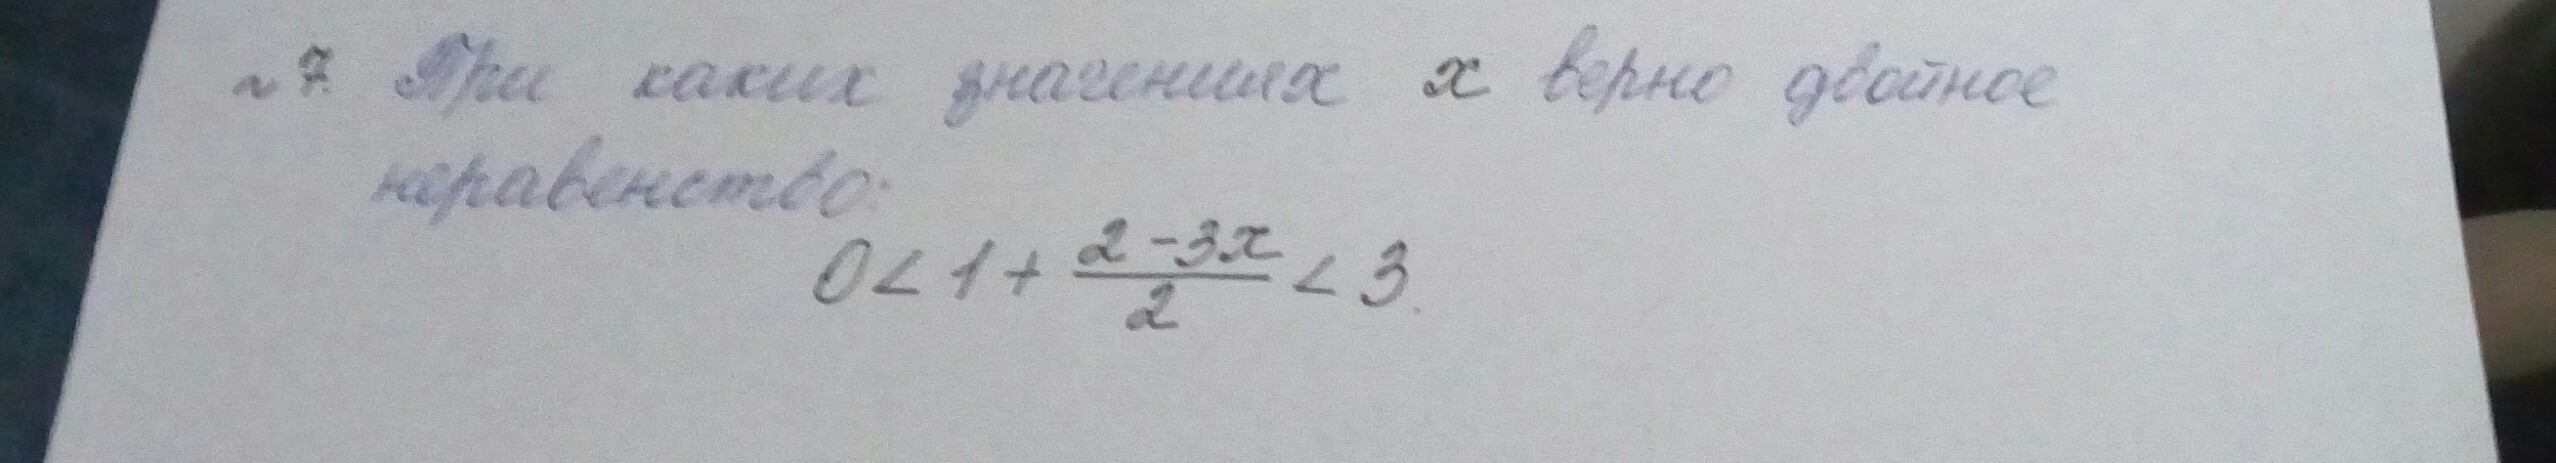 №7. При каких значениях x верно двойное
неравенство:
0 < 1 + \frac{2-3x}{2} < 3.